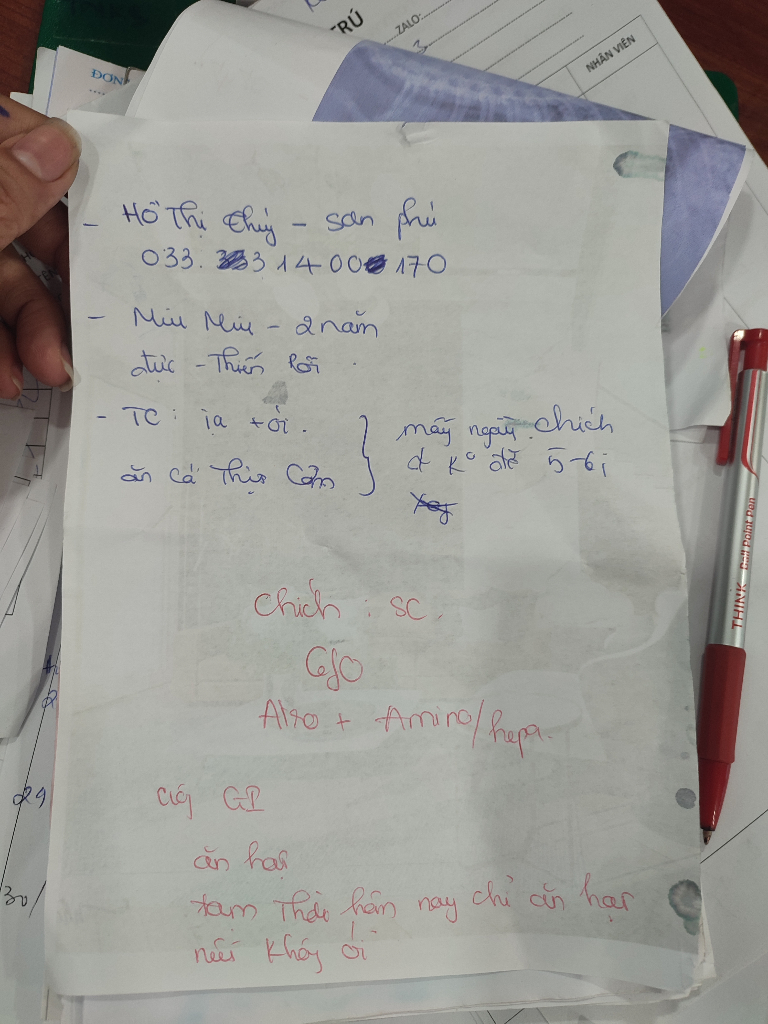 TRÚ
ZALO:
NHÂN VIÊN
ĐƠN
- Hồ Thị Thủy - Sơn phú
033. 3 1 4 00 170
- Miu Miu - 2 năm
đực - Thiến rồi
- TC: ỉa + ói.
ăn cá Thịt Cơm
mấy ngày. chích
5-6
Chích: SC.
Atro + Amino/hepa.
GI
ăn hạt
tạm Thời hôm nay chỉ ăn hạt
nếu không ói
THINK Ball Point Pen
29
30/